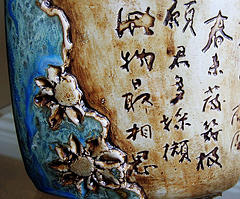 春来發幾枝
願君多採擷
此物最相思